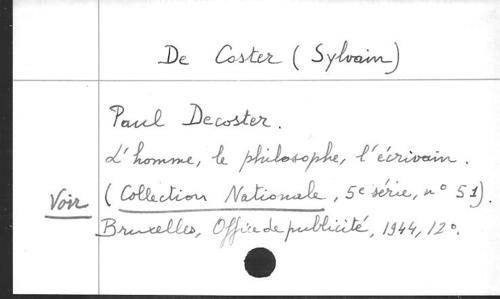 De Coster (Sylvain)
Paul Decoster.
L'homme, le philosophe, l'écrivain.
Voir (Collection Nationale, 5e série, n° 51).
Bruxelles, Office de publicité, 1944, 12°.